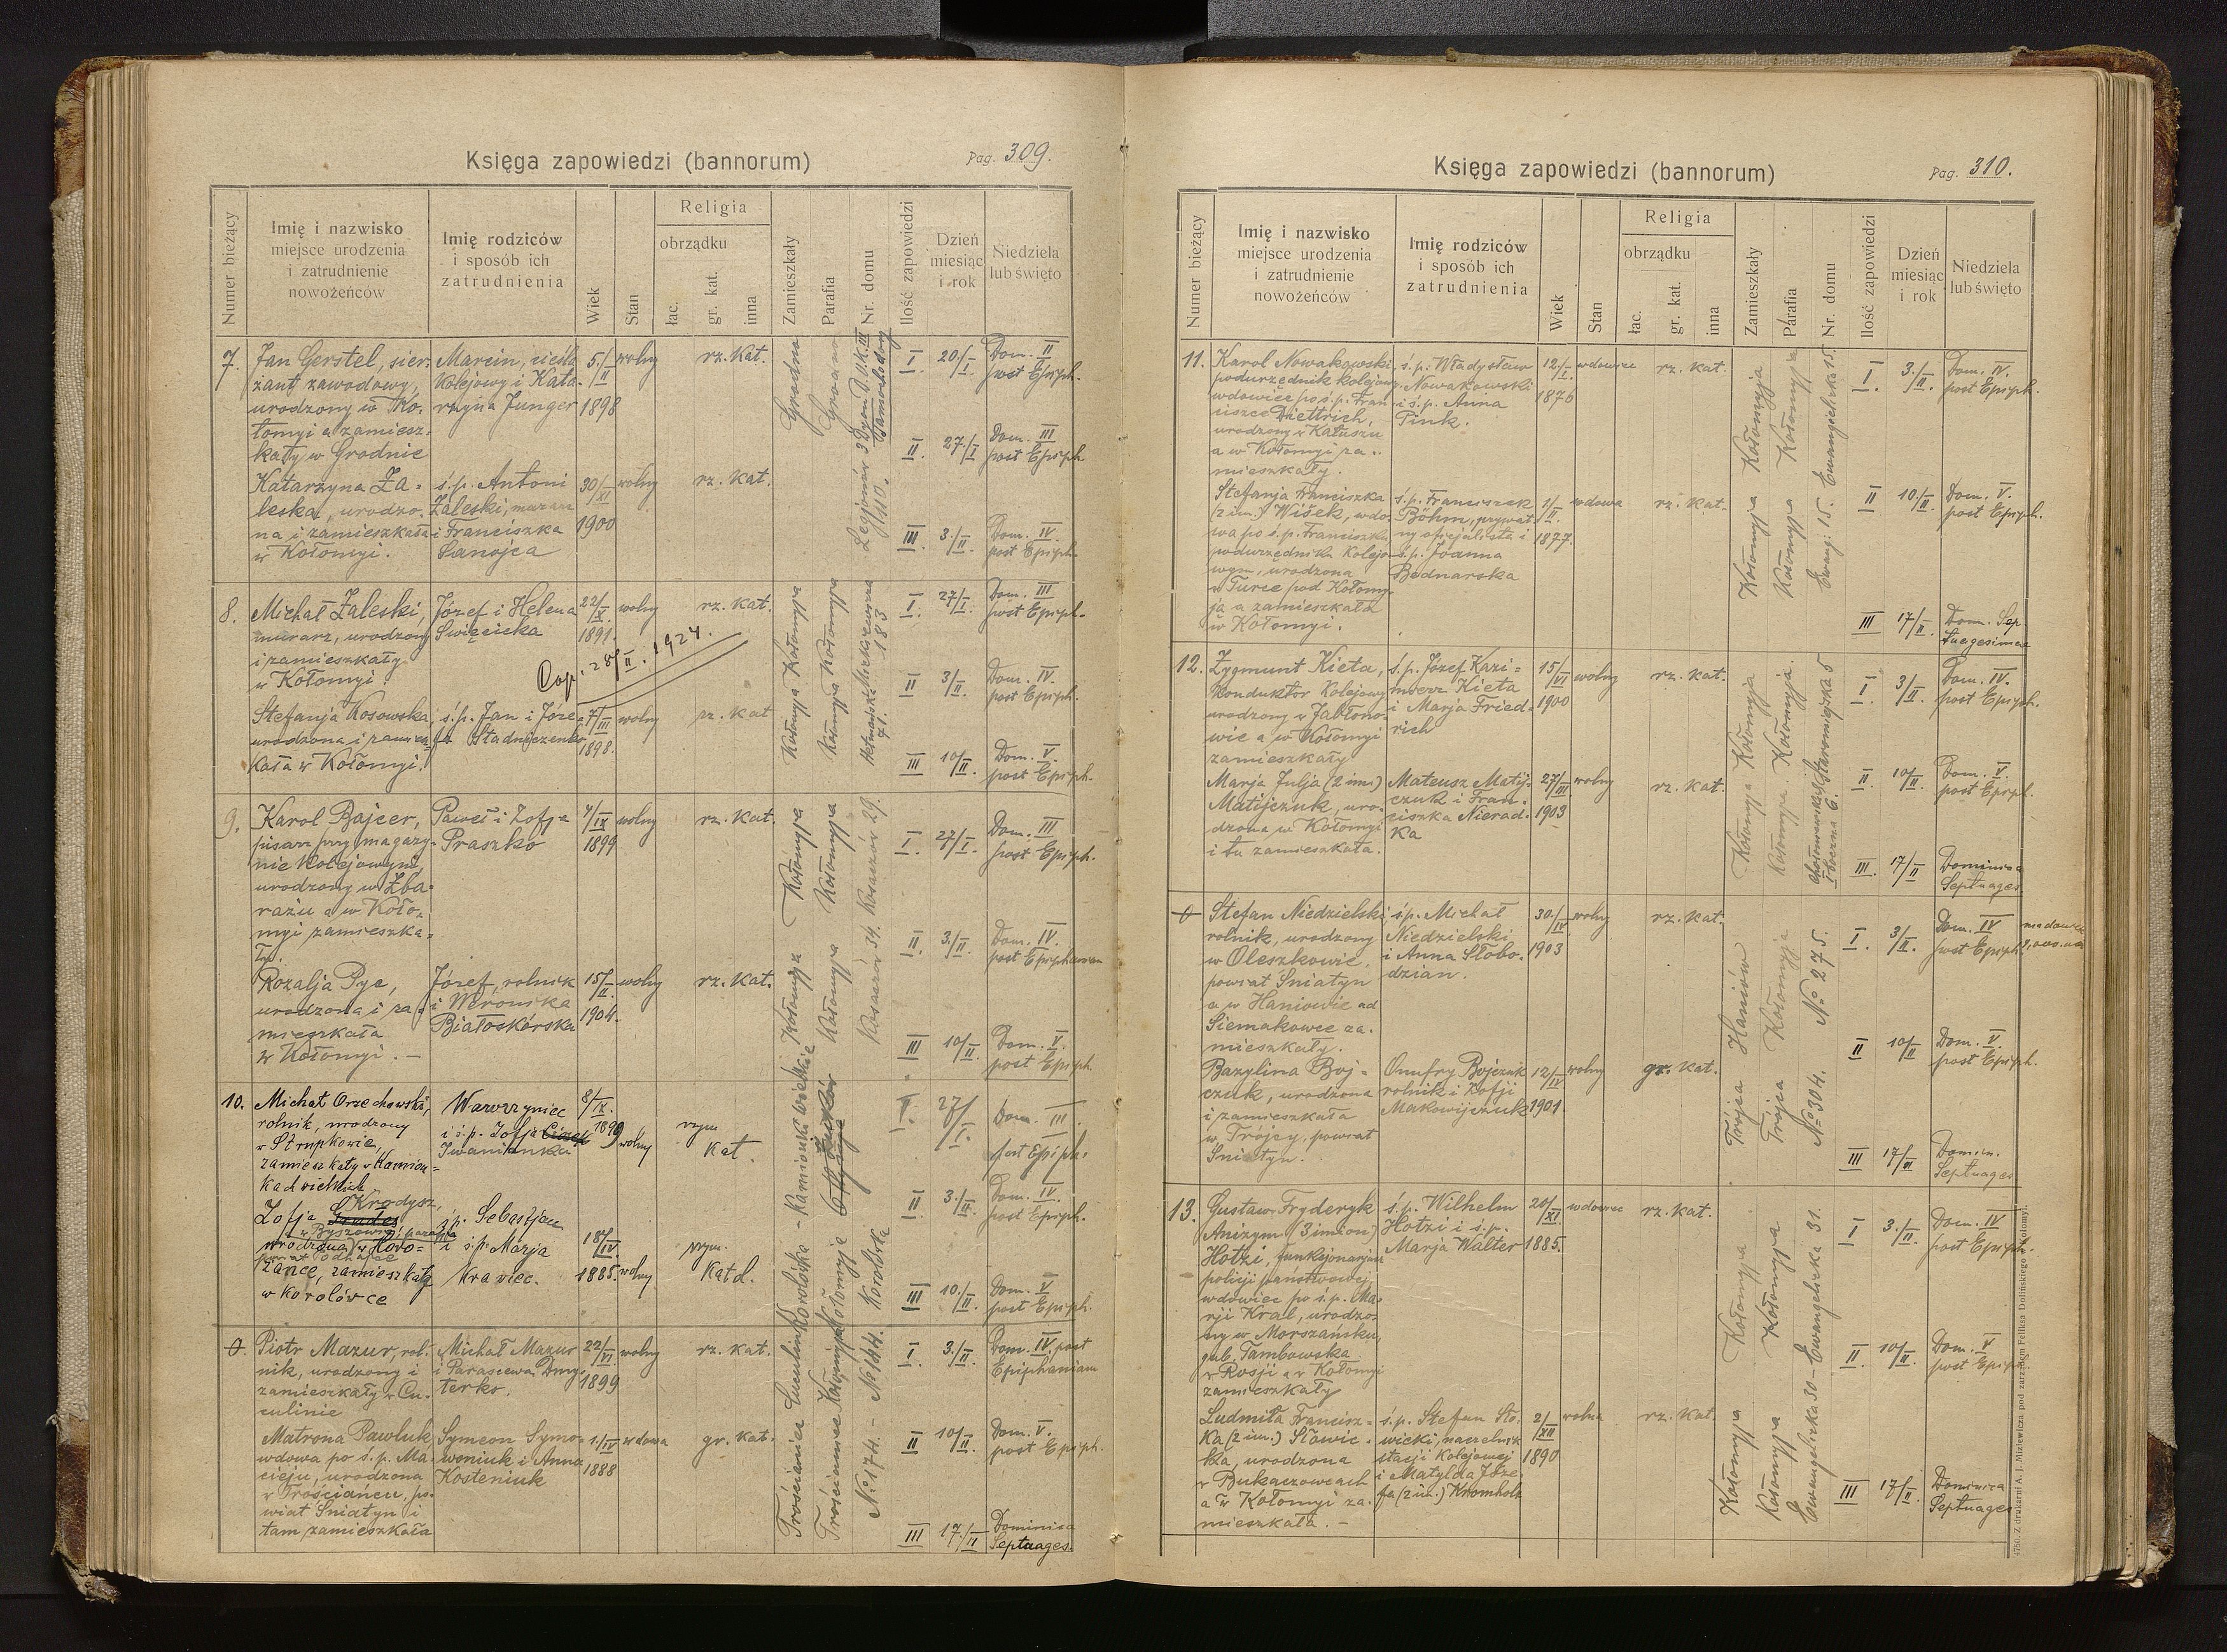 Księga zapowiedzi (bannorum)
Pag. 309.
Numer bieżący
Imię i nazwisko
miejsce urodzenia
i zatrudnienie
nowożeńców
Imię rodziców
i sposób ich
zatrudnienia
Wiek
Stan
Religia
obrządku
łac.
gr. kat.
inna
Zamieszkały
Parafia
Nr. domu
Ilość zapowiedzi
Dzień
miesiąc
i rok
Niedziela
lub święto
7.
Jan Gerstel, sier-
żant zawodowy,
urodzony w Ko-
łomyi a zamiesz-
kały w Grodnie
Marcin, cieśla
kolejowy i Kata-
rzyna Junger
5./II
1898
wolny
rz. kat.
Grodno
Grodno
I 20./I Dom. II
post Epiph.
II 27./I Dom. III
post Epiph.
Katarzyna Za-
leska, urodzo-
na i zamieszkała
w Kołomyi.
ś.p. Antoni
Zaleski, murarz
i Franciszka
Sanojca
30/XI
1900
wolny
rz. kat.
III 3./II Dom. IV.
post Epiph.
8.
Michał Zaleski,
murarz, urodzony
i zamieszkały
w Kołomyi
Józef i Helena
Święcicka
22/X.
1891.
wolny
rz. kat.
Cop. 28/II. 1924.
Kołomyja Kołomyja
Kołomyja Kołomyja
I 27/I. Dom. III
post Epiph.
II 3/II. Dom. IV.
post Epiph.
Stefanja Kosowska
urodzona i zamiesz-
kała w Kołomyi.
ś.p. Jan i Józe-
fa Stadniczenko
7/III
1898.
wolny
rz. kat
III 10/II. Dom. V.
post Epiph.
9.
Karol Bajcer,
pisarz przy magazy-
nie kolejowym,
urodzony w Zba-
rażu a w Koło-
myi zamieszka-
ły.
Paweł i Zofja
Praszko
4/IX
1899
wolny
rz. kat.
Kołomyja Kołomyja
Kołomyja Kołomyja
Koszarów 34. Koszarów 29.
I. 27/I. Dom. III
post Epiph.
II. 3./II Dom. IV.
post Epiphaniam
Rozalja Pyc,
urodzona i za-
mieszkała
w Kołomyi. —
Józef, rolnik
i Weronika
Białoskórska
15/II.
1904.
wolny
rz. kat.
III 10/II Dom. V.
post Epiph.
10.
Michał Orzechowski,
rolnik, urodzony
w Strupkowie,
zamieszkały w Kamion-
kach wielkich
Wawrzyniec
i ś.p. Zofja
Iwanicka
8/IX.
1899
wolny
rzym
Kat.
Korolówka - Kamionki wielkie
I. 27/I. Dom. III.
post Epiph.
II 3./II. Dom. IV.
post Epiph.
Zofja Krodysz,
w Byszowie, parafja
urodzona w Nowo-
zańce, zamieszkała
w Korolówce
ś.p. Sebastjan
i ś.p. Marja
Krawiec.
18/IV.
1885.
wolny
rzym.
Katol.
Korolówka
III 10./II. Dom. V
post Epiph.
0.
Piotr Mazur, rol-
nik, urodzony i
zamieszkały w Cu-
culinie
Michał Mazur
i Parascewa Dmy-
terko.
22/VI
1899
wolny
rz. kat.
Trościanica Cuculin
Trościaniec Kołomyja
No 174. - No 144.
I 3./II. Dom. IV. post
Epiphaniam
Matrona Pawluk
wdowa po ś.p. Ma-
cieju, urodzona
w Trościańcu, po-
wiat Śniatyn i
tam zamieszkała
Symeon Symo-
woniuk i Anna
Kosteniuk
1./IV
1888
wdowa
gr. kat.
II 10/II. Dom. V.
post Epiph.
III 17./II Dominica
Septuages.
Księga zapowiedzi (bannorum)
Pag. 310.
Numer bieżący
Imię i nazwisko
miejsce urodzenia
i zatrudnienie
nowożeńców
Imię rodziców
i sposób ich
zatrudnienia
Wiek
Stan
Religia
obrządku
łac.
gr. kat.
inna
Zamieszkały
Parafia
Nr. domu
Ilość zapowiedzi
Dzień
miesiąc
i rok
Niedziela
lub święto
11.
Karol Nowakowski
podurzędnik kolejowy,
wdowiec po ś.p. Fran-
ciszce Diettrich,
urodzony w Kałuszu
a w Kołomyi za-
mieszkały.
ś.p. Władysław
Nowakowski
i ś.p. Anna
Pink.
12/I.
1876
wdowiec
rz. kat.
Kołomyja Kołomyja
Kołomyja Kołomyja
Ewang. 15. Ewangielicka 15.
I. 3./II. Dom. IV.
post Epiph.
Stefanja Franciszka
(2 im.) Wišek, wdo-
wa po ś.p. Franciszku
podurzędniku kolejo-
wym, urodzona
w Turce pod Kołomy-
ją a zamieszkała
w Kołomyi.
ś.p. Franciszek
Böhm, prywat-
ny oficjalista i
ś.p. Joanna
Bednarska
1/II.
1877.
wdowa
rz. kat.
II 10./II. Dom. V.
post Epiph.
III 17/II. Dom. Sep
tuagesimae
12.
Zygmunt Kieta,
konduktor kolejowy
urodzony w Jabłono-
wie a w Kołomyi
zamieszkały
ś.p. Józef Kazi-
mierz Kieta
i Marja Fried-
rich
15/VI
1900
wolny
rz. kat.
Kołomyja Kołomyja
Kołomyja Kołomyja.
I. 3/II Dom. IV.
post Epiph.
Marja Julja (2 im.)
Matijczuk, uro-
dzona w Kołomyi
i tu zamieszkała.
Mateusz Matij-
czuk i Fran-
ciszka Nierad-
ka
27/III
1903
wolny
rz. kat.
II. 10/II Dom. V.
post Epiph.
III. 17/II Dominica
Septuages.
0
Stefan Niedzielski
rolnik, urodzony
w Oleszkowie,
powiat Śniatyn
a w Haniowie ad
Siemakowce za-
mieszkały.
ś.p. Michał
Niedzielski
i Anna Słobo-
dzian.
30./IV.
1903
wolny
rz. kat.
Trójca Haniów
Trójca Kołomyja
No 304. No 275.
I. 3/II. Dom. IV
post Epiph.
II 10/II Dom. V.
post Epiph.
Bazylina Boj-
czuk, urodzona
i zamieszkała
w Trójcy, powiat
Śniatyn.
Onufry Bojczuk
rolnik i Zofji
Makowijczuk
12/IV
1901.
wolny
gr. kat.
III 17/II Domin.
Septuages
13.
Gustaw Fryderyk
Anizym (3 imion)
Hotzi, funkcjonarjusz
policji państwowej,
wdowiec po ś.p. Ma-
rji Kral, urodzo-
ny w Morszańsku,
gub. Tambowska
w Rosji a w Kołomyi
zamieszkały
ś.p. Wilhelm
Hotzi i ś.p.
Marja Walter
20/XI
1885.
wdowiec
rz. kat.
Kołomyja Kołomyja
Kołomyja Kołomyja
Ewangelicka 30 - Ewangelicka 31.
I 3./II. Dom. IV
post Epiph.
II. 10/II. Dom. V
post Epiph
Ludmiła Francisz-
ka (2 im.) Sławic-
ka, urodzona
w Bukaczowcach
a w Kołomyi za-
mieszkała. —
ś.p. Stefan Sła-
wicki, naczelnik
stacji kolejowej
i Matylda Józe-
fa (2 im.) Kromholz
2/XII
1890
wolna
rz. kat.
III 17/II. Dominica
Septuages
4750. Z drukarni A. J. Miziewicza pod zarządem Feliksa Dolińskiego w Kołomyi.